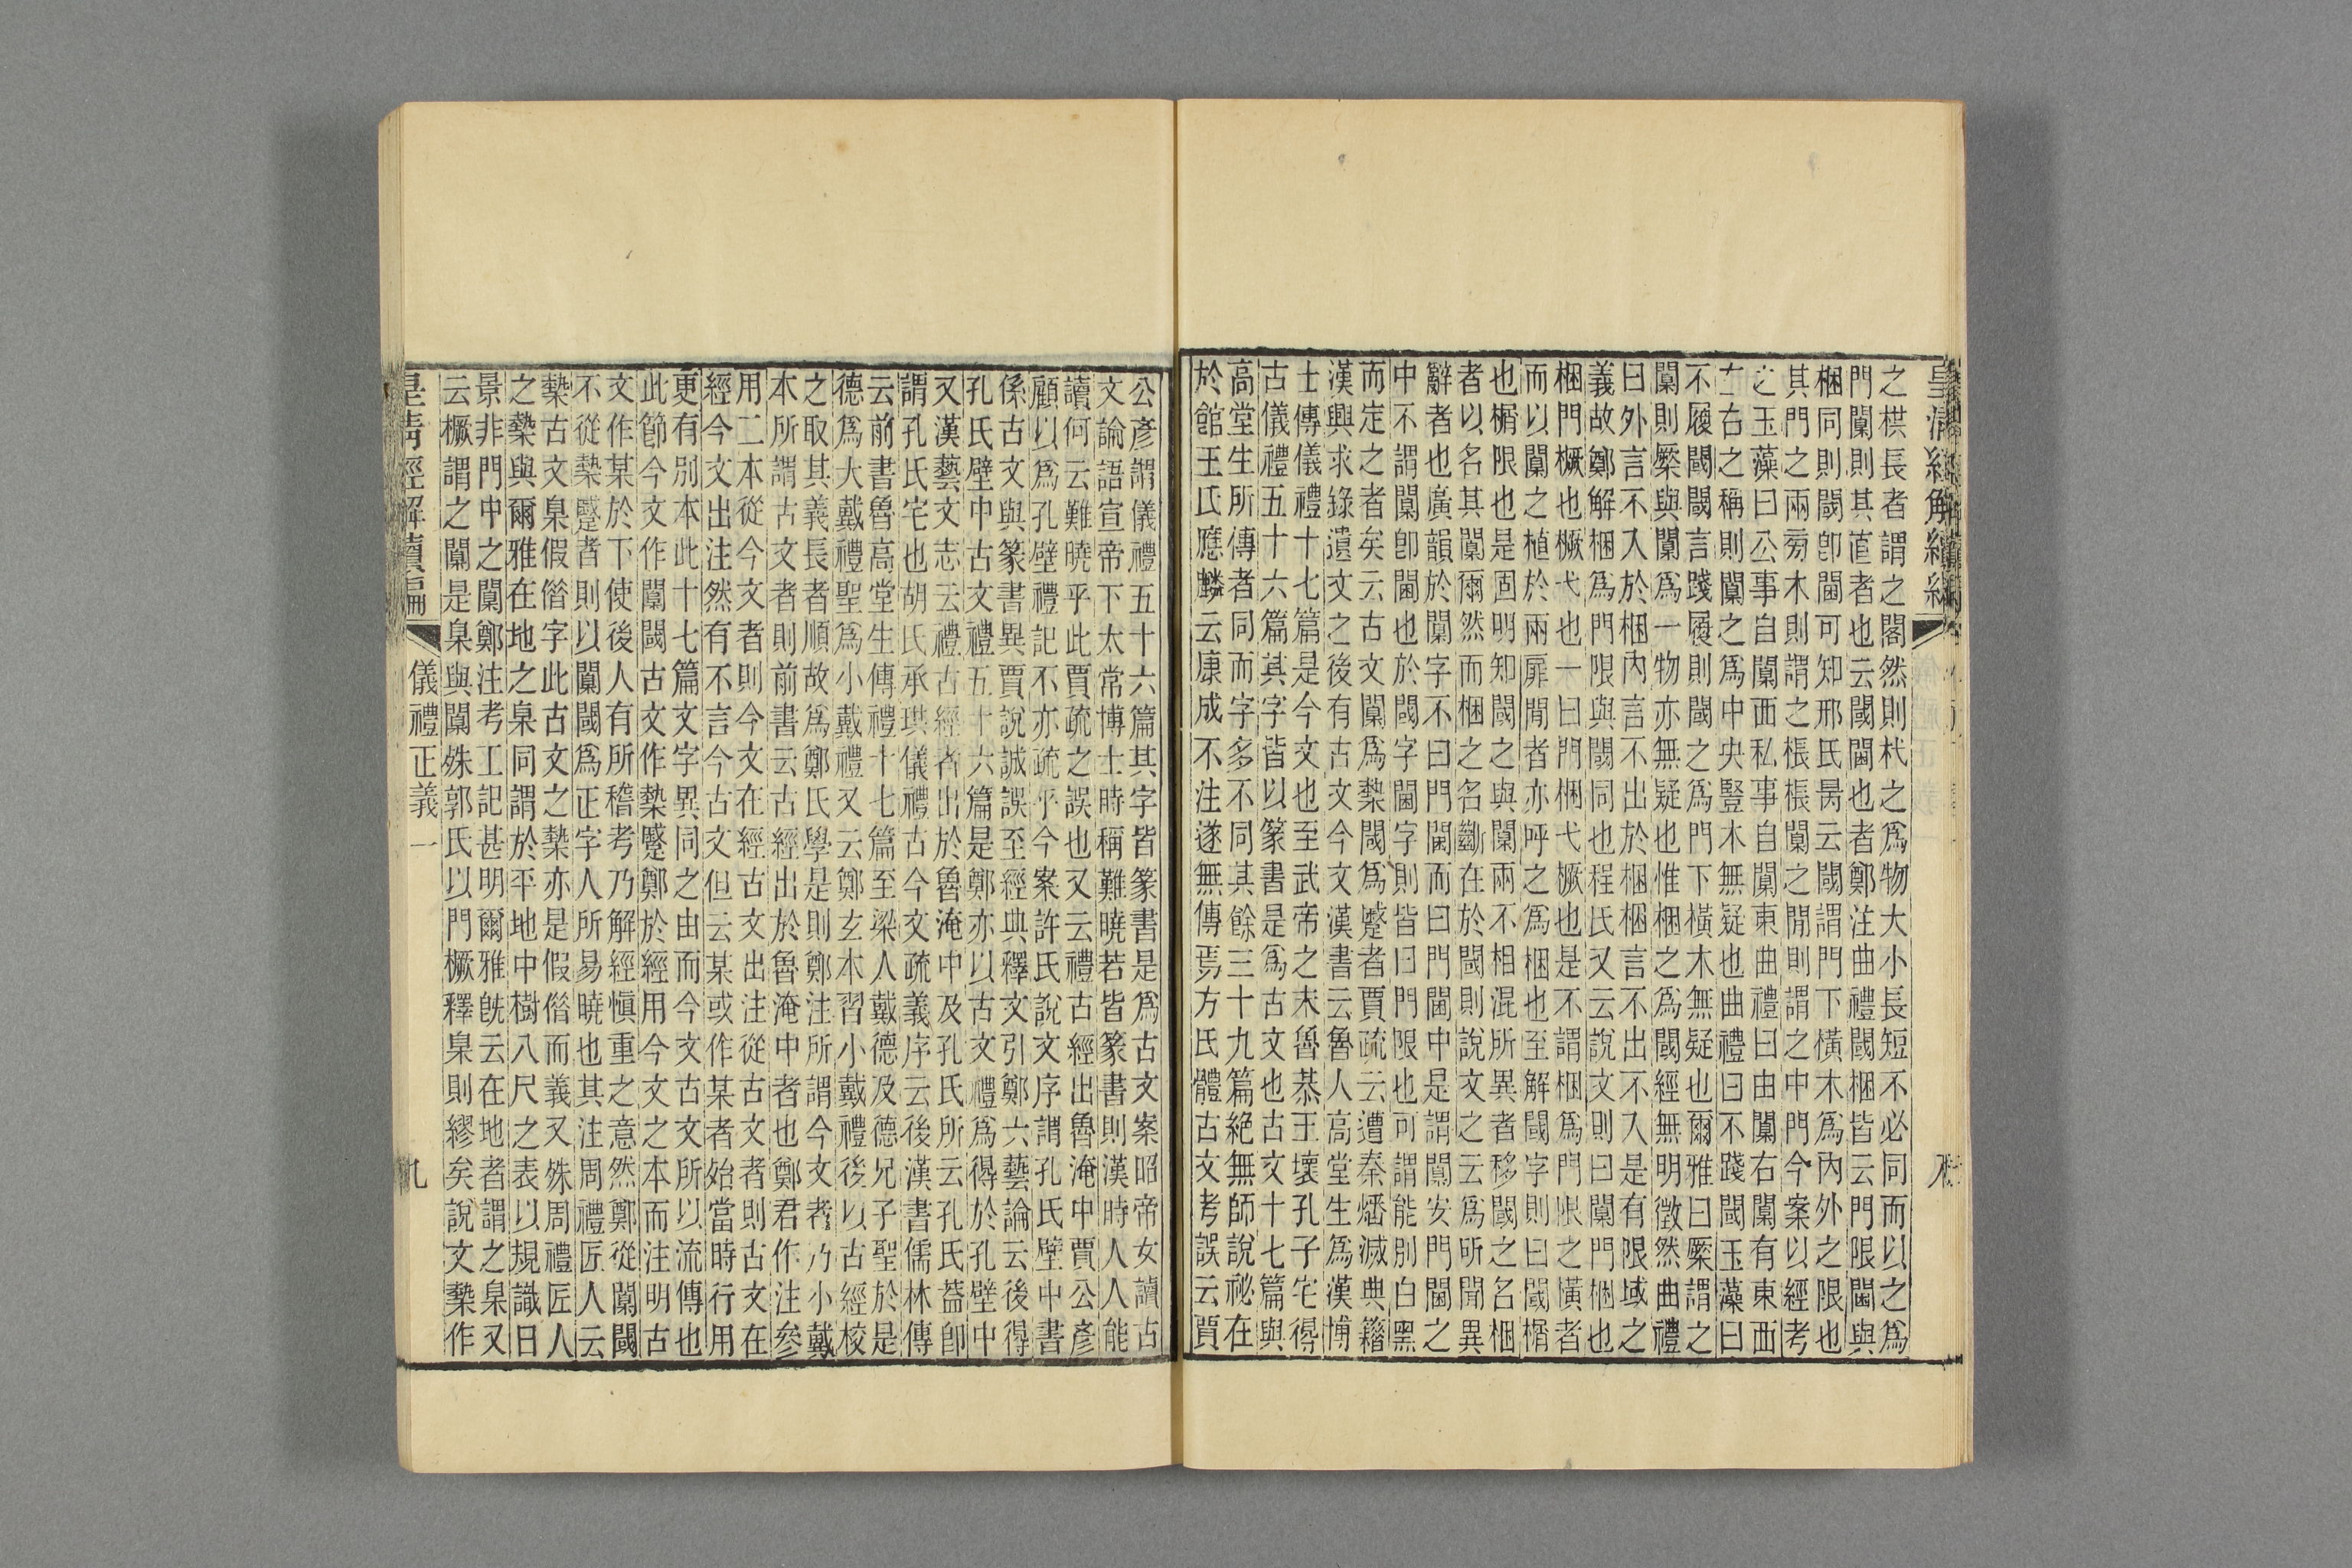 之栱長者謂之閣然則杙之爲物大小長短不必同而以之爲
門闑則其直者也云閾閫也者鄭注曲禮閾梱皆云門限閫與
梱同則閾卽閫可知邢氏昺云閾謂門下橫木爲內外之限也
其門之兩旁木則謂之棖棖闑之閒則謂之中門今案以經考
之玉藻曰公事自闑西私事自闑東曲禮曰由闑右闑有東西
左右之稱則闑之爲中央豎木無疑也曲禮曰不踐閾玉藻曰
不履閾閾言踐履則閾之爲門下橫木無疑也爾雅曰橜謂之
闑則橜與闑爲一物亦無疑也惟梱之爲閾經無明徵然曲禮
曰外言不入於梱內言不出於梱梱言不出不入是有限域之
義故鄭解梱爲門限與閾同也程氏又云說文則曰闑門梱也
梱門橛也橛弋也一曰門梱弋橛也是不謂梱爲門限之橫者
而以闑之植於兩扉閒者亦呼之爲梱也至解閾字則曰閾榍
也榍限也是固明知閾之與闑兩不相混所異者移閾之名梱
者以名其闑爾然而梱之名斷在於閾則說文之云爲所聞異
辭者也廣韻於闑字不曰門閫而曰門閫中是謂闑安門閫之
中不謂闑卽閫也於閾字閫字則皆曰門限也可謂能別白黑
而定之者矣云古文闑爲槷閾爲蹙者賈疏云遭秦燔滅典籍
漢興求錄遺文之後有古文今文漢書云魯人高堂生爲漢博
士傳儀禮十七篇是今文也至武帝之末魯恭王壞孔子宅得
古儀禮五十六篇其字皆以篆書是爲古文也古文十七篇與
高堂生所傳者同而字多不同其餘三十九篇絕無師說祕在
於館王氏應麟云康成不注遂無傳焉方氏體古文考誤云賈
公彥謂儀禮五十六篇其字皆篆書是爲古文案昭帝女讀古
文論語宣帝下太常博士時稱難曉若皆篆書則漢時人人能
讀何云難曉乎此賈疏之誤也又云禮古經出魯淹中賈公彥
顧以爲孔壁禮記不亦疏乎今案許氏說文序謂孔氏壁中書
係古文與篆書異賈說誠誤至經典釋文引鄭六藝論云後得
孔氏壁中古文禮五十六篇是鄭亦以古文禮爲得於孔壁中
又漢藝文志云禮古經者出於魯淹中及孔氏所云孔氏葢卽
謂孔氏宅也胡氏承珙儀禮古今文疏義序云後漢書儒林傳
云前書魯高堂生傳禮十七篇至梁人戴德及德兄子聖於是
德爲大戴禮聖爲小戴禮又云鄭玄本習小戴禮後以古經校
之取其義長者順故爲鄭氏學是則鄭注所謂今文者乃小戴
本所謂古文者則前書云古經出於魯淹中者也鄭君作注參
用二本從今文者則今文在經古文出注從古文者則古文在
經今文出注然有不言今古文但云某或作某者始當時行用
更有別本此十七篇文字異同之由而今文古文所以流傳也
此節今文作闑閾古文作槷蹙鄭於經用今文之本而注明古
文作某於下使後人有所稽考乃解經愼重之意然鄭從闑閾
不從槷蹙者則以闑閾爲正字人所易曉也其注周禮匠人云
槷古文臬假借字此古文之槷亦是假借而義又殊周禮匠人
之槷與爾雅在地之臬同謂於平地中樹八尺之表以規識日
景非門中之闑鄭注考工記甚明爾雅旣云在地者謂之臬又
云橛謂之闑是臬與闑殊郭氏以門橛釋臬則繆矣說文槷作
皇淸經解續編 儀禮正義一 九